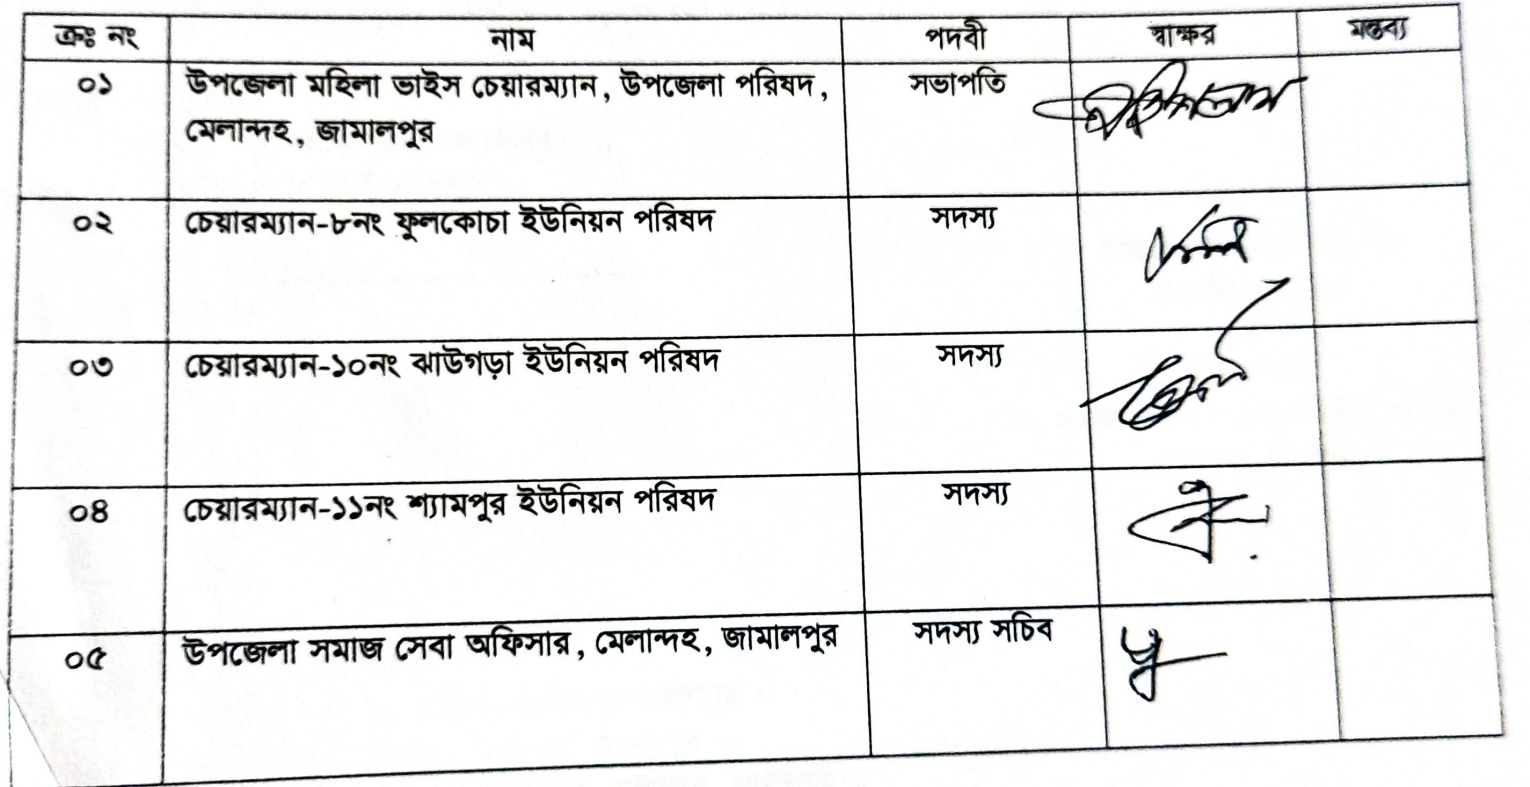 ক্রঃ নং নাম পদবী স্বাক্ষর মন্তব্য
০১ উপজেলা মহিলা ভাইস চেয়ারম্যান, উপজেলা পরিষদ, সভাপতি
মেলান্দহ, জামালপুর
০২ চেয়ারম্যান-৮নং ফুলকোচা ইউনিয়ন পরিষদ সদস্য
০৩ চেয়ারম্যান-১০নং ঝাউগড়া ইউনিয়ন পরিষদ সদস্য
০৪ চেয়ারম্যান-১১নং শ্যামপুর ইউনিয়ন পরিষদ সদস্য
০৫ উপজেলা সমাজ সেবা অফিসার, মেলান্দহ, জামালপুর সদস্য সচিব